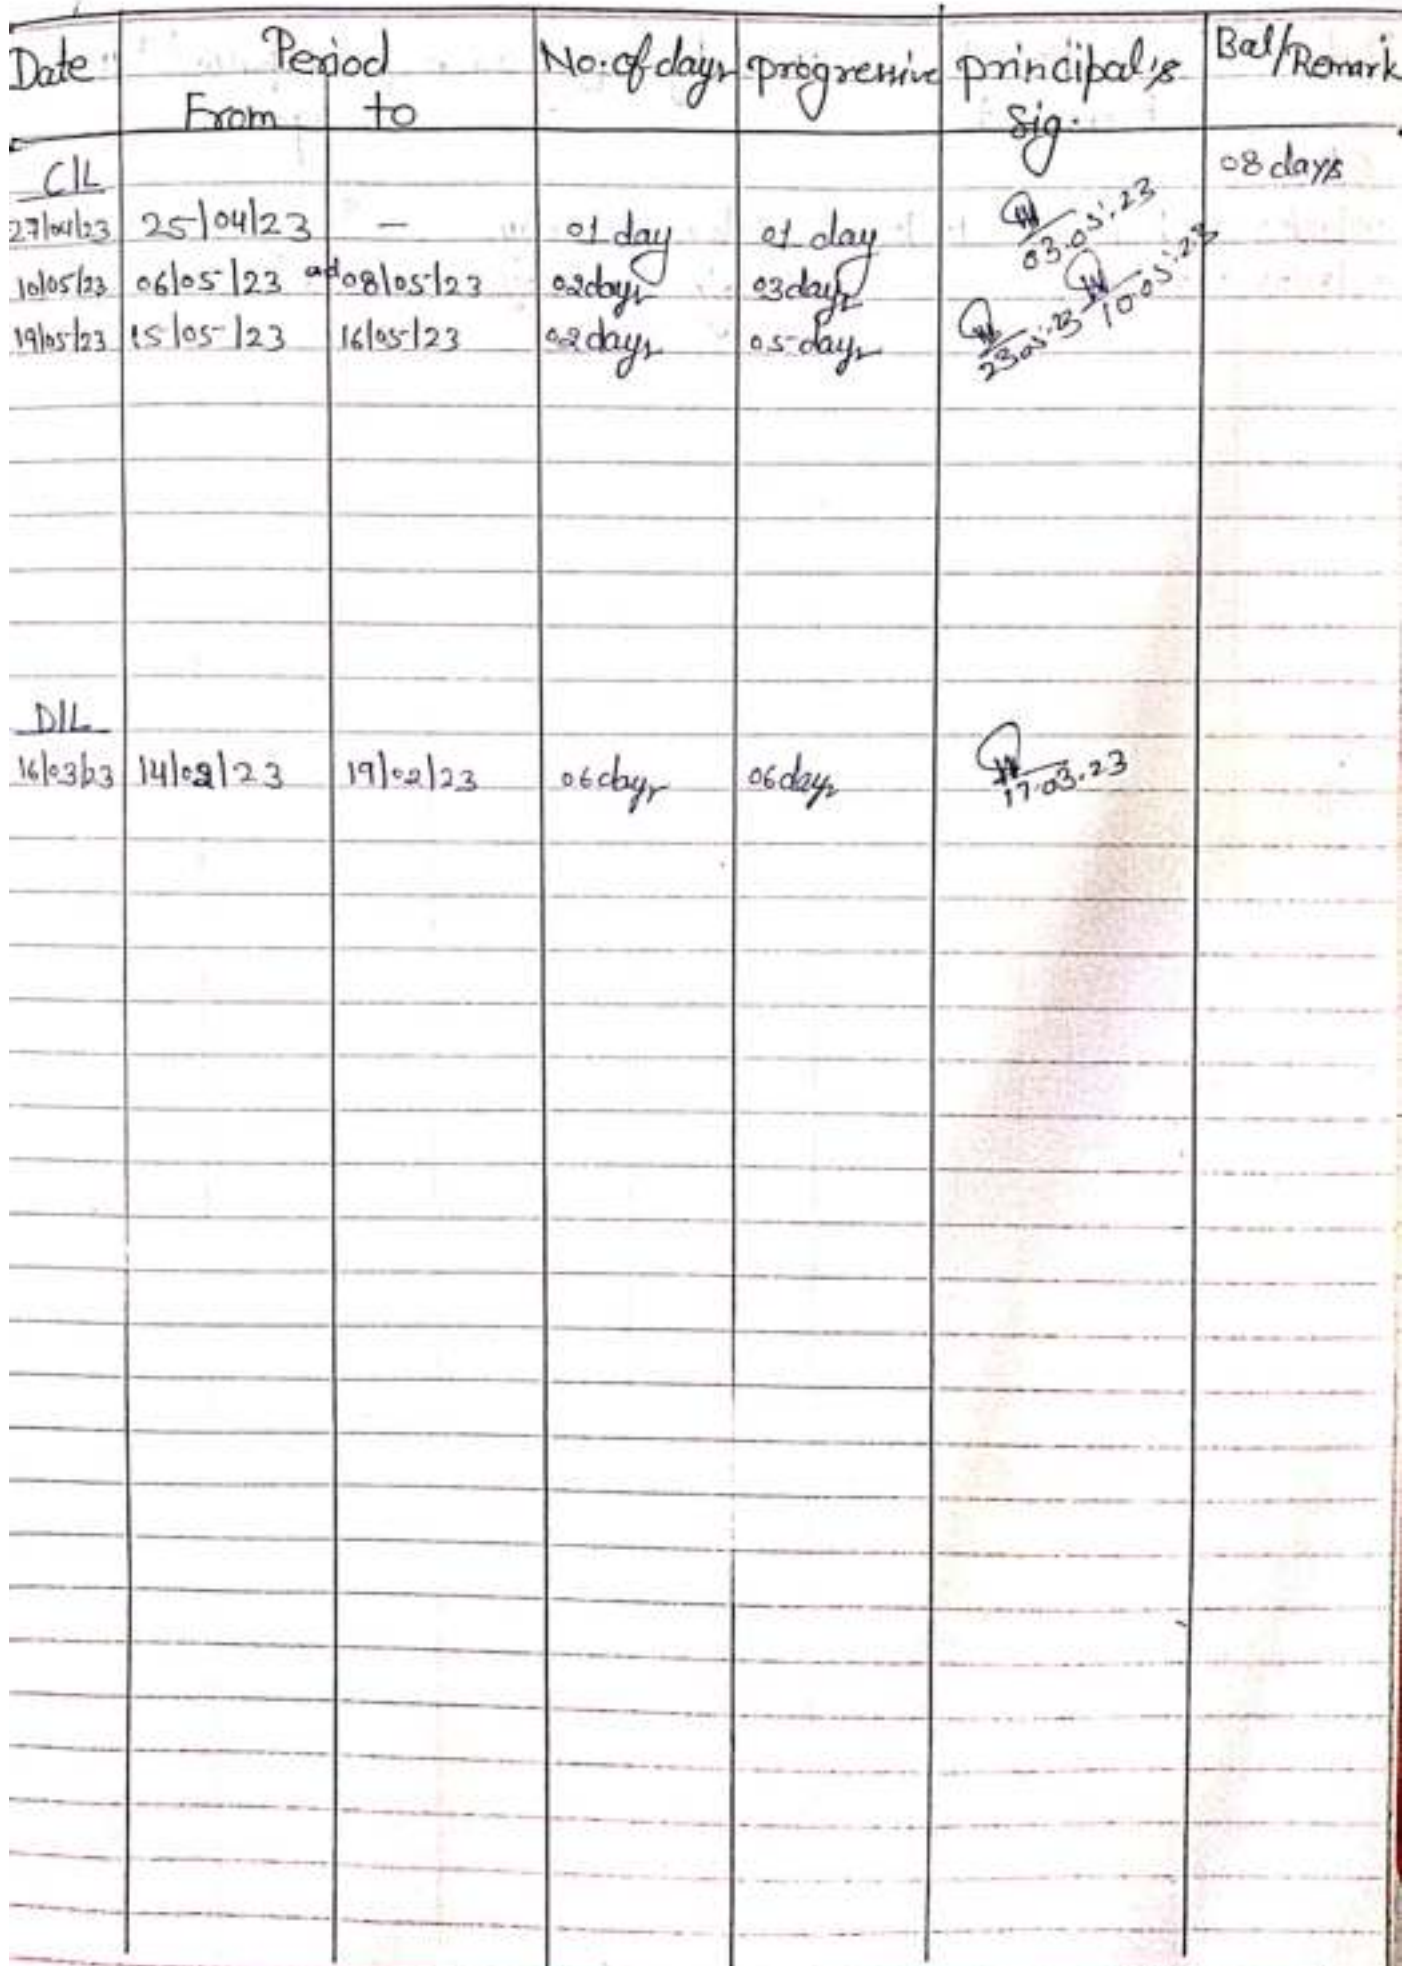 Date Period No. of days progressive principal's Bal/Remark
From to sig.
C/L 08 days
27/04/23 25/04/23 — 01 day 01 day 03.05.23
10/05/23 06/05/23 and 08/05/23 02 days 03 days 10.05.23
19/05/23 15/05/23 16/05/23 02 days 05 days 23.05.23
D/L
16/03/23 14/02/23 19/02/23 06 days 06 days 17.03.23